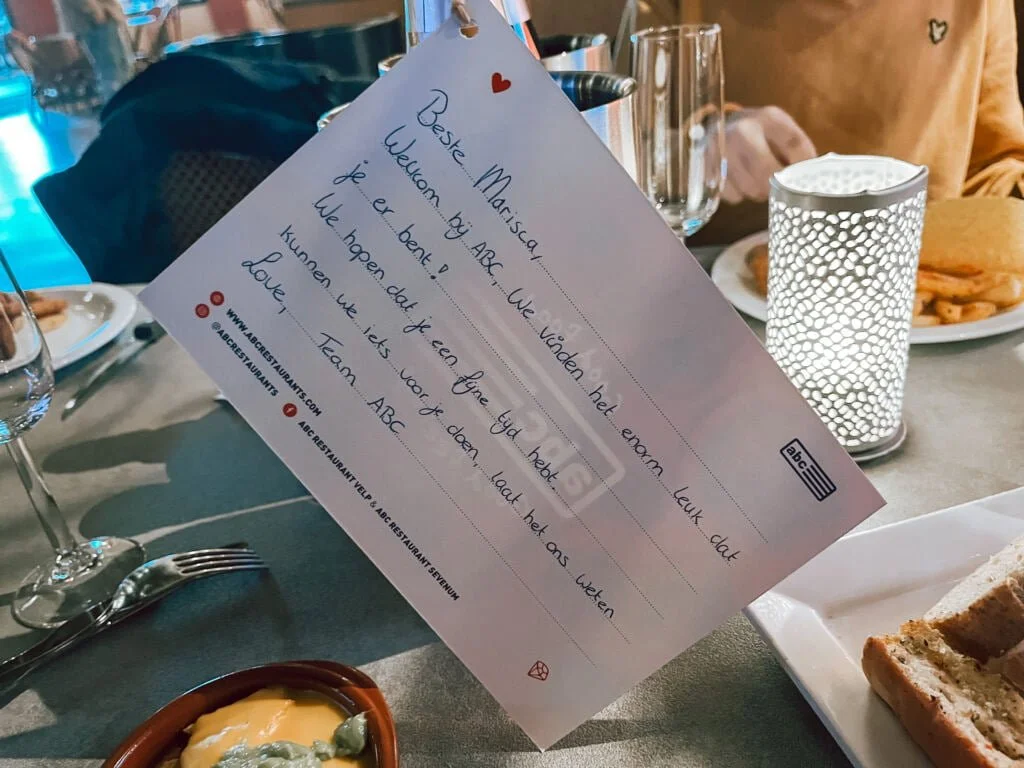 Beste Marisca,
Welkom bij ABC, We vinden het enorm leuk dat
je er bent!
We hopen dat je een fijne tijd hebt.
Kunnen we iets voor je doen, laat het ons weten
Love, Team ABC
WWW.ABCRESTAURANTS.COM
@ABCRESTAURANTS
ABC RESTAURANT VELP & ABC RESTAURANT SEVENUM
abc